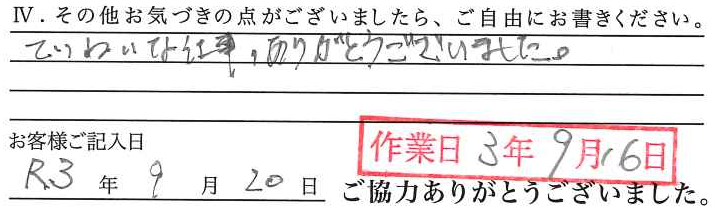 Ⅳ．その他お気づきの点がございましたら、ご自由にお書きください。
ていねいな仕事，ありがとうございました。
お客様ご記入日
作業日 3年 9月16日
R.3 年 9 月 20 日
ご協力ありがとうございました。